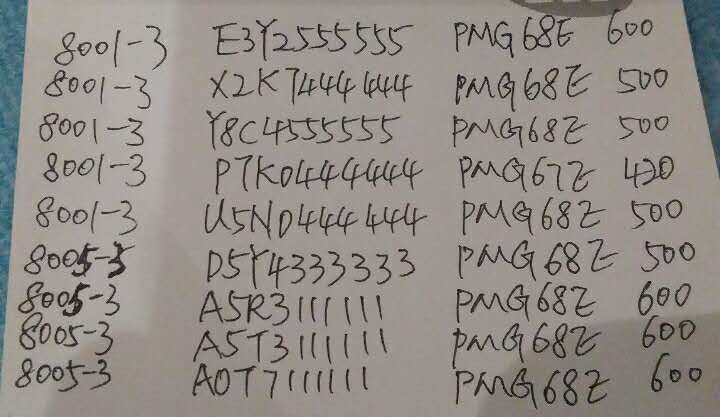 8001-3 E3Y2555555 PMG68E 600
8001-3 X2K7444444 PMG68Z 500
8001-3 Y8C4555555 PMG68Z 500
8001-3 P7K0444444 PMG67Z 420
8001-3 U5N0444444 PMG68Z 500
8005-3 D5Y4333333 PMG68Z 500
8005-3 A5R3111111 PMG68Z 600
8005-3 A5T3111111 PMG68Z 600
8005-3 A0T7111111 PMG68Z 600